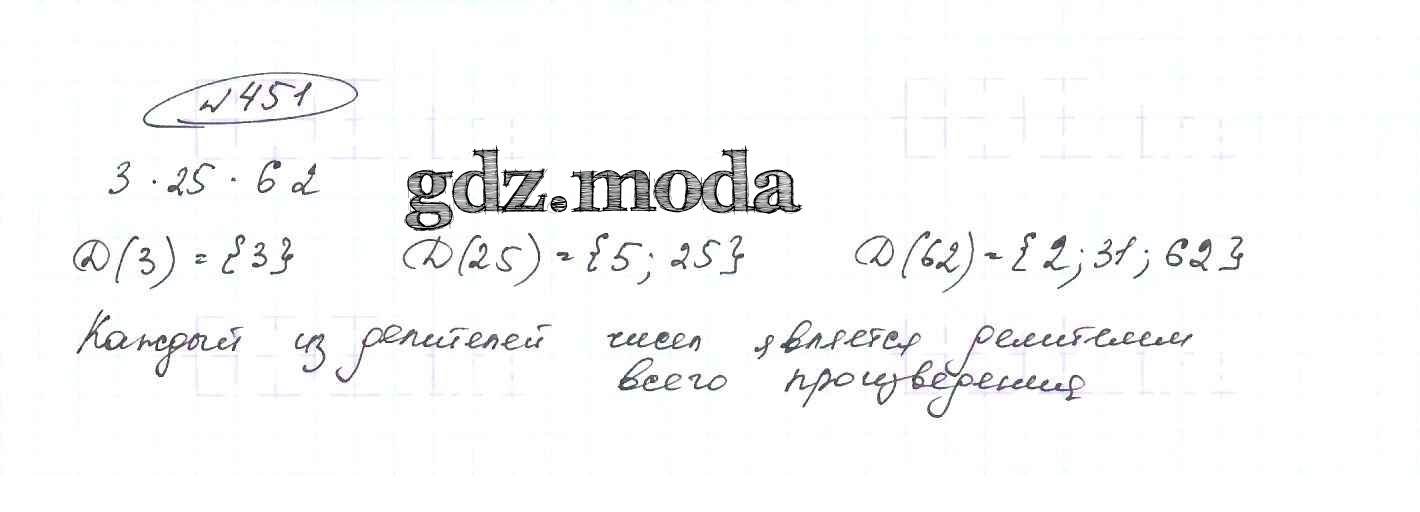 № 451
3 · 25 · 62
gdz.moda
D(3) = {3} D(25) = {5; 25} D(62) = {2; 31; 62}
Каждый из делителей чисел является делителем
всего произведения